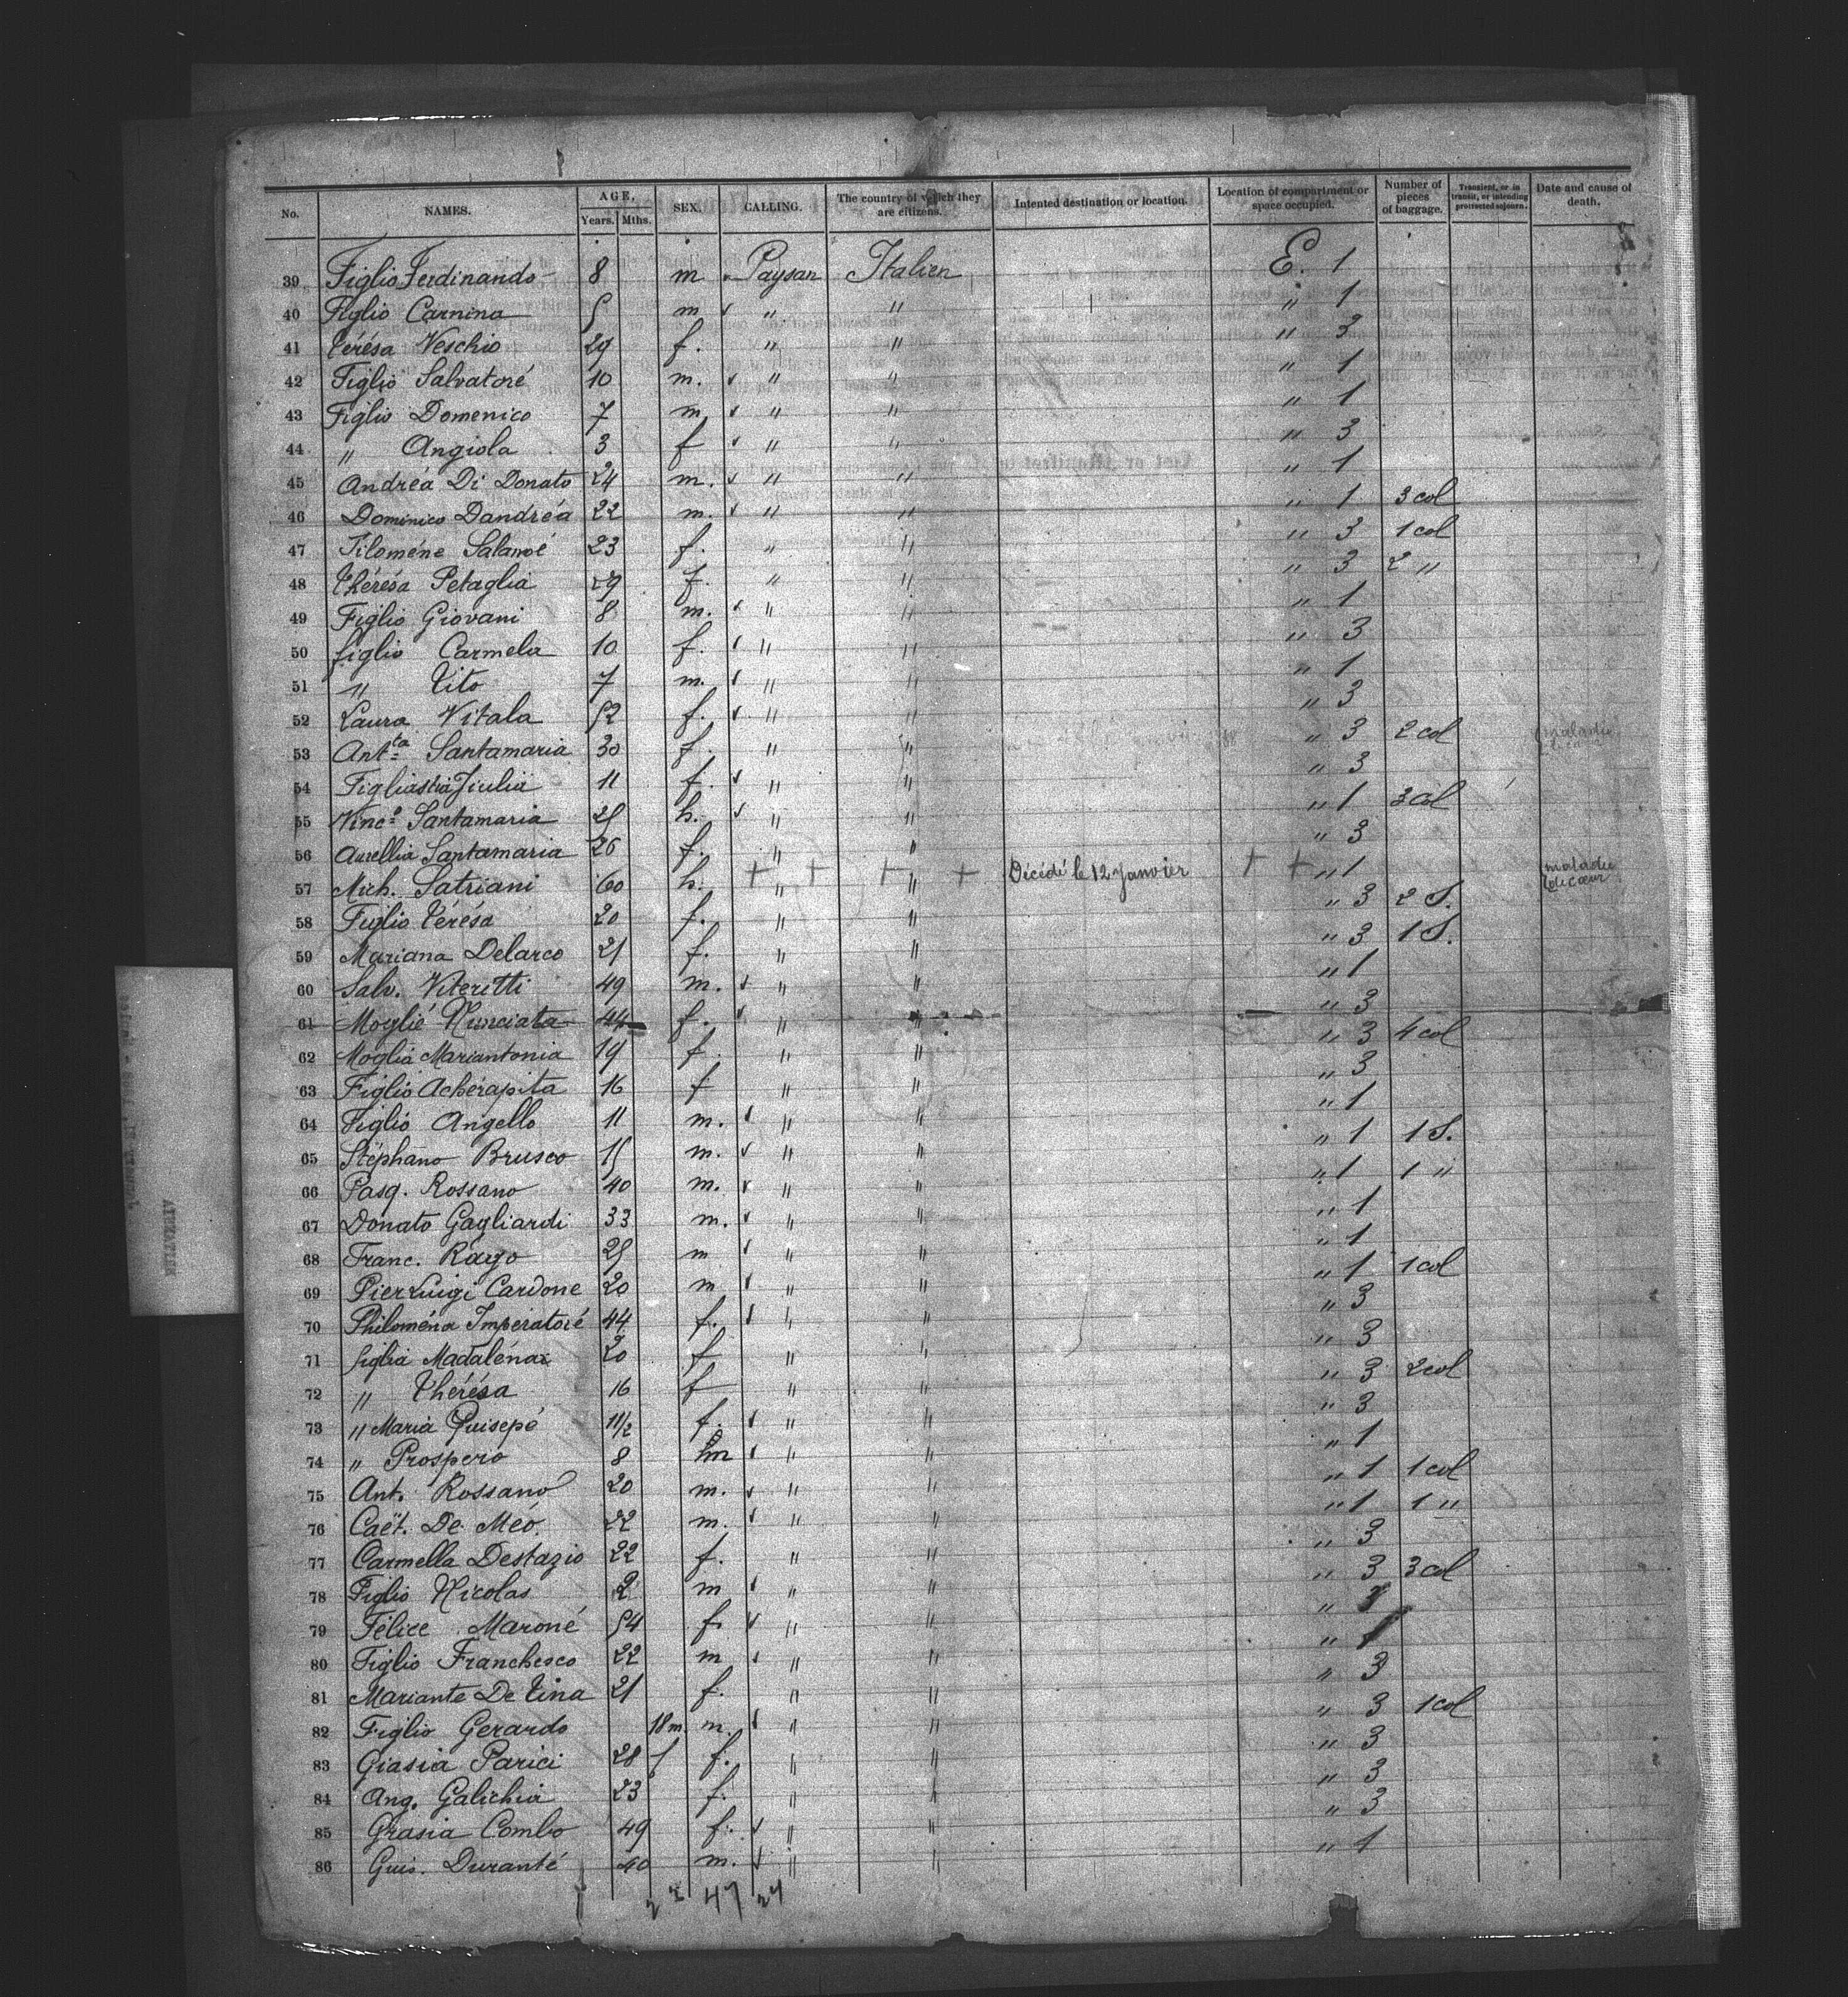 No. NAMES. AGE, Years. Mths. SEX. CALLING. The country of which they are citizens. Intented destination or location. Location of compartment or space occupied. Number of pieces of baggage. Transient, or in transit, or intending protracted sejourn. Date and cause of death.
39 Figlio Ferdinando 8 m Paysan Italien E. 1
40 Figlio Carnina 5 m " " " 1
41 Térésa Veschio 29 f. " " " 3
42 Figlio Salvatoré 10 m. " " " 1
43 Figlio Domenico 7 m " " " 1
44 " Angiola 3 f " " " 3
45 Andréa Di Donato 24 m. " " " 1
46 Dominico Dandréa 22 m. " " " 1 3 col
47 Filoméne 23 f. " " " 3 1 col
48 Thérésa Petaglia 29 f. " " " 3 2 "
49 Figlio Giovani 8 m. " " " 1
50 figlio Carmela 10 f. " " " 3
51 " Tito 7 m. " " " 1
52 Laura Vitala 52 f. " " " 3
53 Antta Santamaria 30 f. " " " 3 2 col maladie
54 Figliastia Jiulia 11 f. " " " 3
55 Vinco Santamaria 25 h. " " " 1 3 col
56 Aurellia Santamaria 26 f. " " " 3
57 Mich. Satriani 60 h. + + " + " + Décédé le 12 Janvier + + " 1 maladie de cœur
58 Figlio Térésa 20 f. " " " 3 2 S.
59 Mariana Delarco 21 f. " " " 3 1 S.
60 Salv. Viteritti 49 m. " " " 1
61 Moglié Nunciata 44 f. " " " 3
62 Moglia Mariantonia 19 f. " " " 3 4 col
63 Figlio Acherapita 16 f " " " 3
64 Figlio Angello 11 m. " " " 1
65 Stéphano Brusco 15 m. " " " 1 1 S.
66 Pasq. Rossano 40 m. " " " 1 1 "
67 Donato Gagliardi 33 m. " " " 1
68 Franc. Rago 25 m " " " 1
69 Pierluigi Cardone 20 m " " " 1 1 col
70 Philoména Imperatoré 44 f. " " " 3
71 figlia Madaléna 20 f " " " 3
72 " Thérésa 16 f " " " 3 2 col
73 " Maria Quisepé 11½ f. " " " 3
74 " Prospero 8 hm " " " 1
75 Ant. Rossano 20 m. " " " 1 1 col
76 Caët. De Méo. 22 m. " " " 1 1 "
77 Carmella Destazio 22 f. " " " 3
78 Figlio Nicolas 2 m " " " 3 3 col
79 Félice Maroné 54 f. " " " 3
80 Figlio Franchesco 22 m " " " 1
81 Mariante De Tina 21 f. " " " 3
82 Figlio Gerardo 18 m m. " " " 3 1 col
83 Giasia Parici 28 f. " " " 3
84 Ang. Galichia 23 f. " " " 3
85 Grasia Combo 49 f. " " " 3
86 Guis. Duranté 40 m. " " " 1
47 24